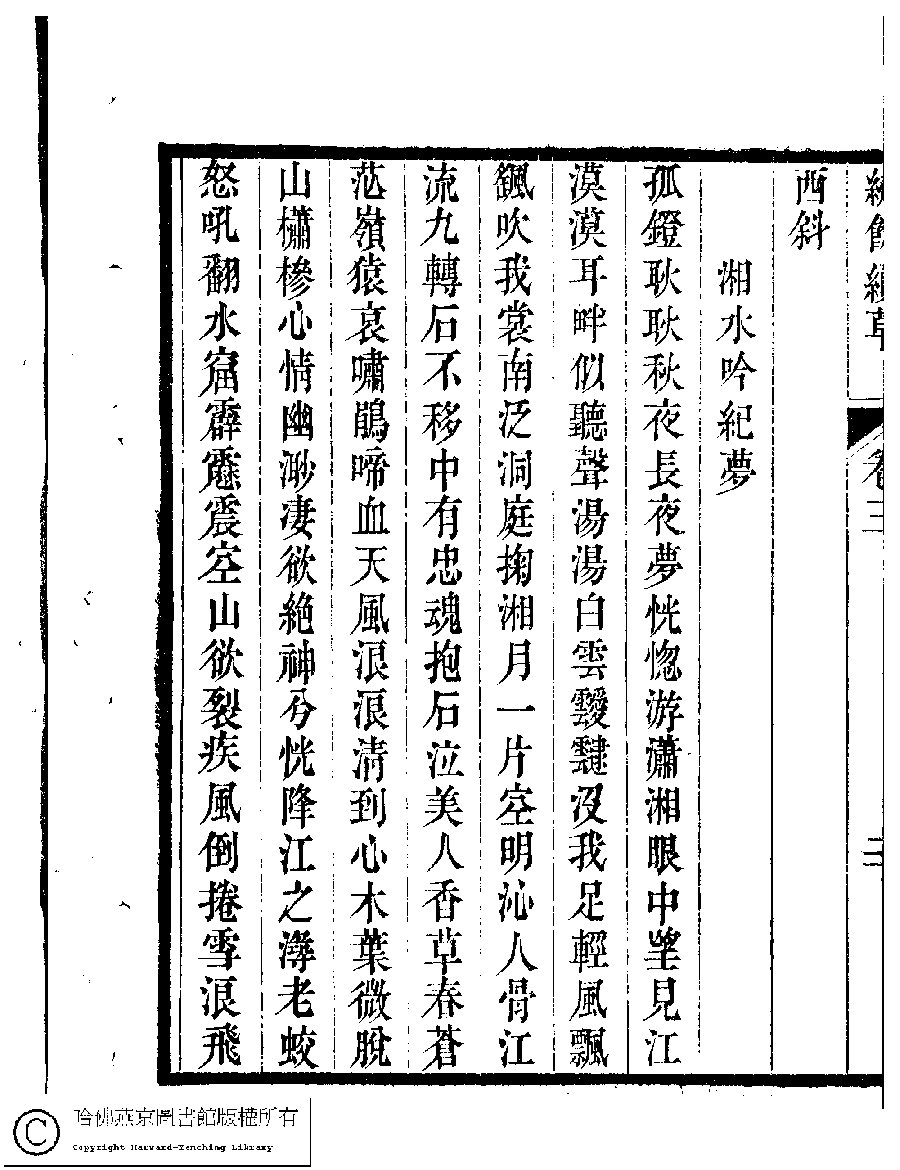 續草
卷三
二
西斜
湘水吟紀夢
孤鐙耿耿秋夜長夜夢恍惚游瀟湘眼中望見江
漠漠耳畔似聽聲湯湯白雲靉靆沒我足輕風飄
颻吹我裳南泛洞庭掬湘月一片空明沁人骨江
流九轉石不移中有忠魂抱石泣美人香草春蒼
茫嶺猿哀嘯鵑啼血天風浪浪清到心木葉微脫
山櫹槮心情幽渺淒欲絶神兮恍降江之潯老蛟
怒吼翻水窟霹靂震空山欲裂疾風倒捲雪浪飛
哈佛燕京圖書館版權所有
Copyright Harvard-Yenching Library